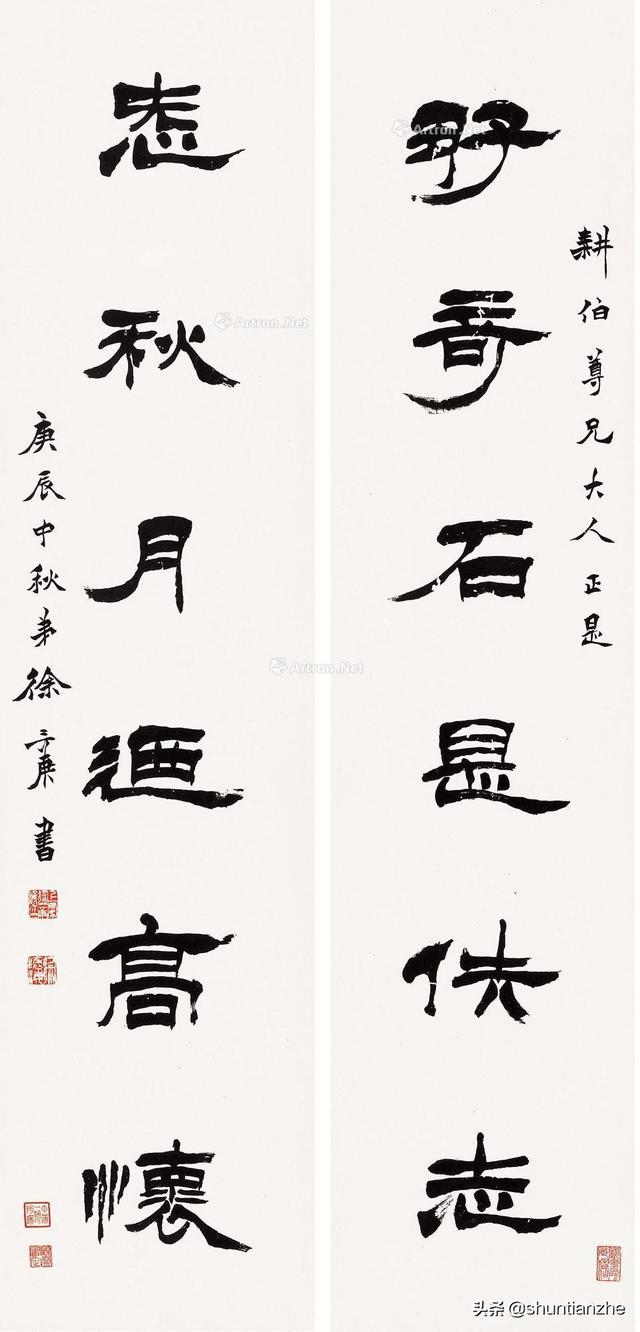 耕伯尊兄大人正是
好奇石是佚志
㤅秋月迺高懷
庚辰中秋弟徐三庚書
Artron.Net
Artron.Net
Artron.Net
头条 @shuntianzhe